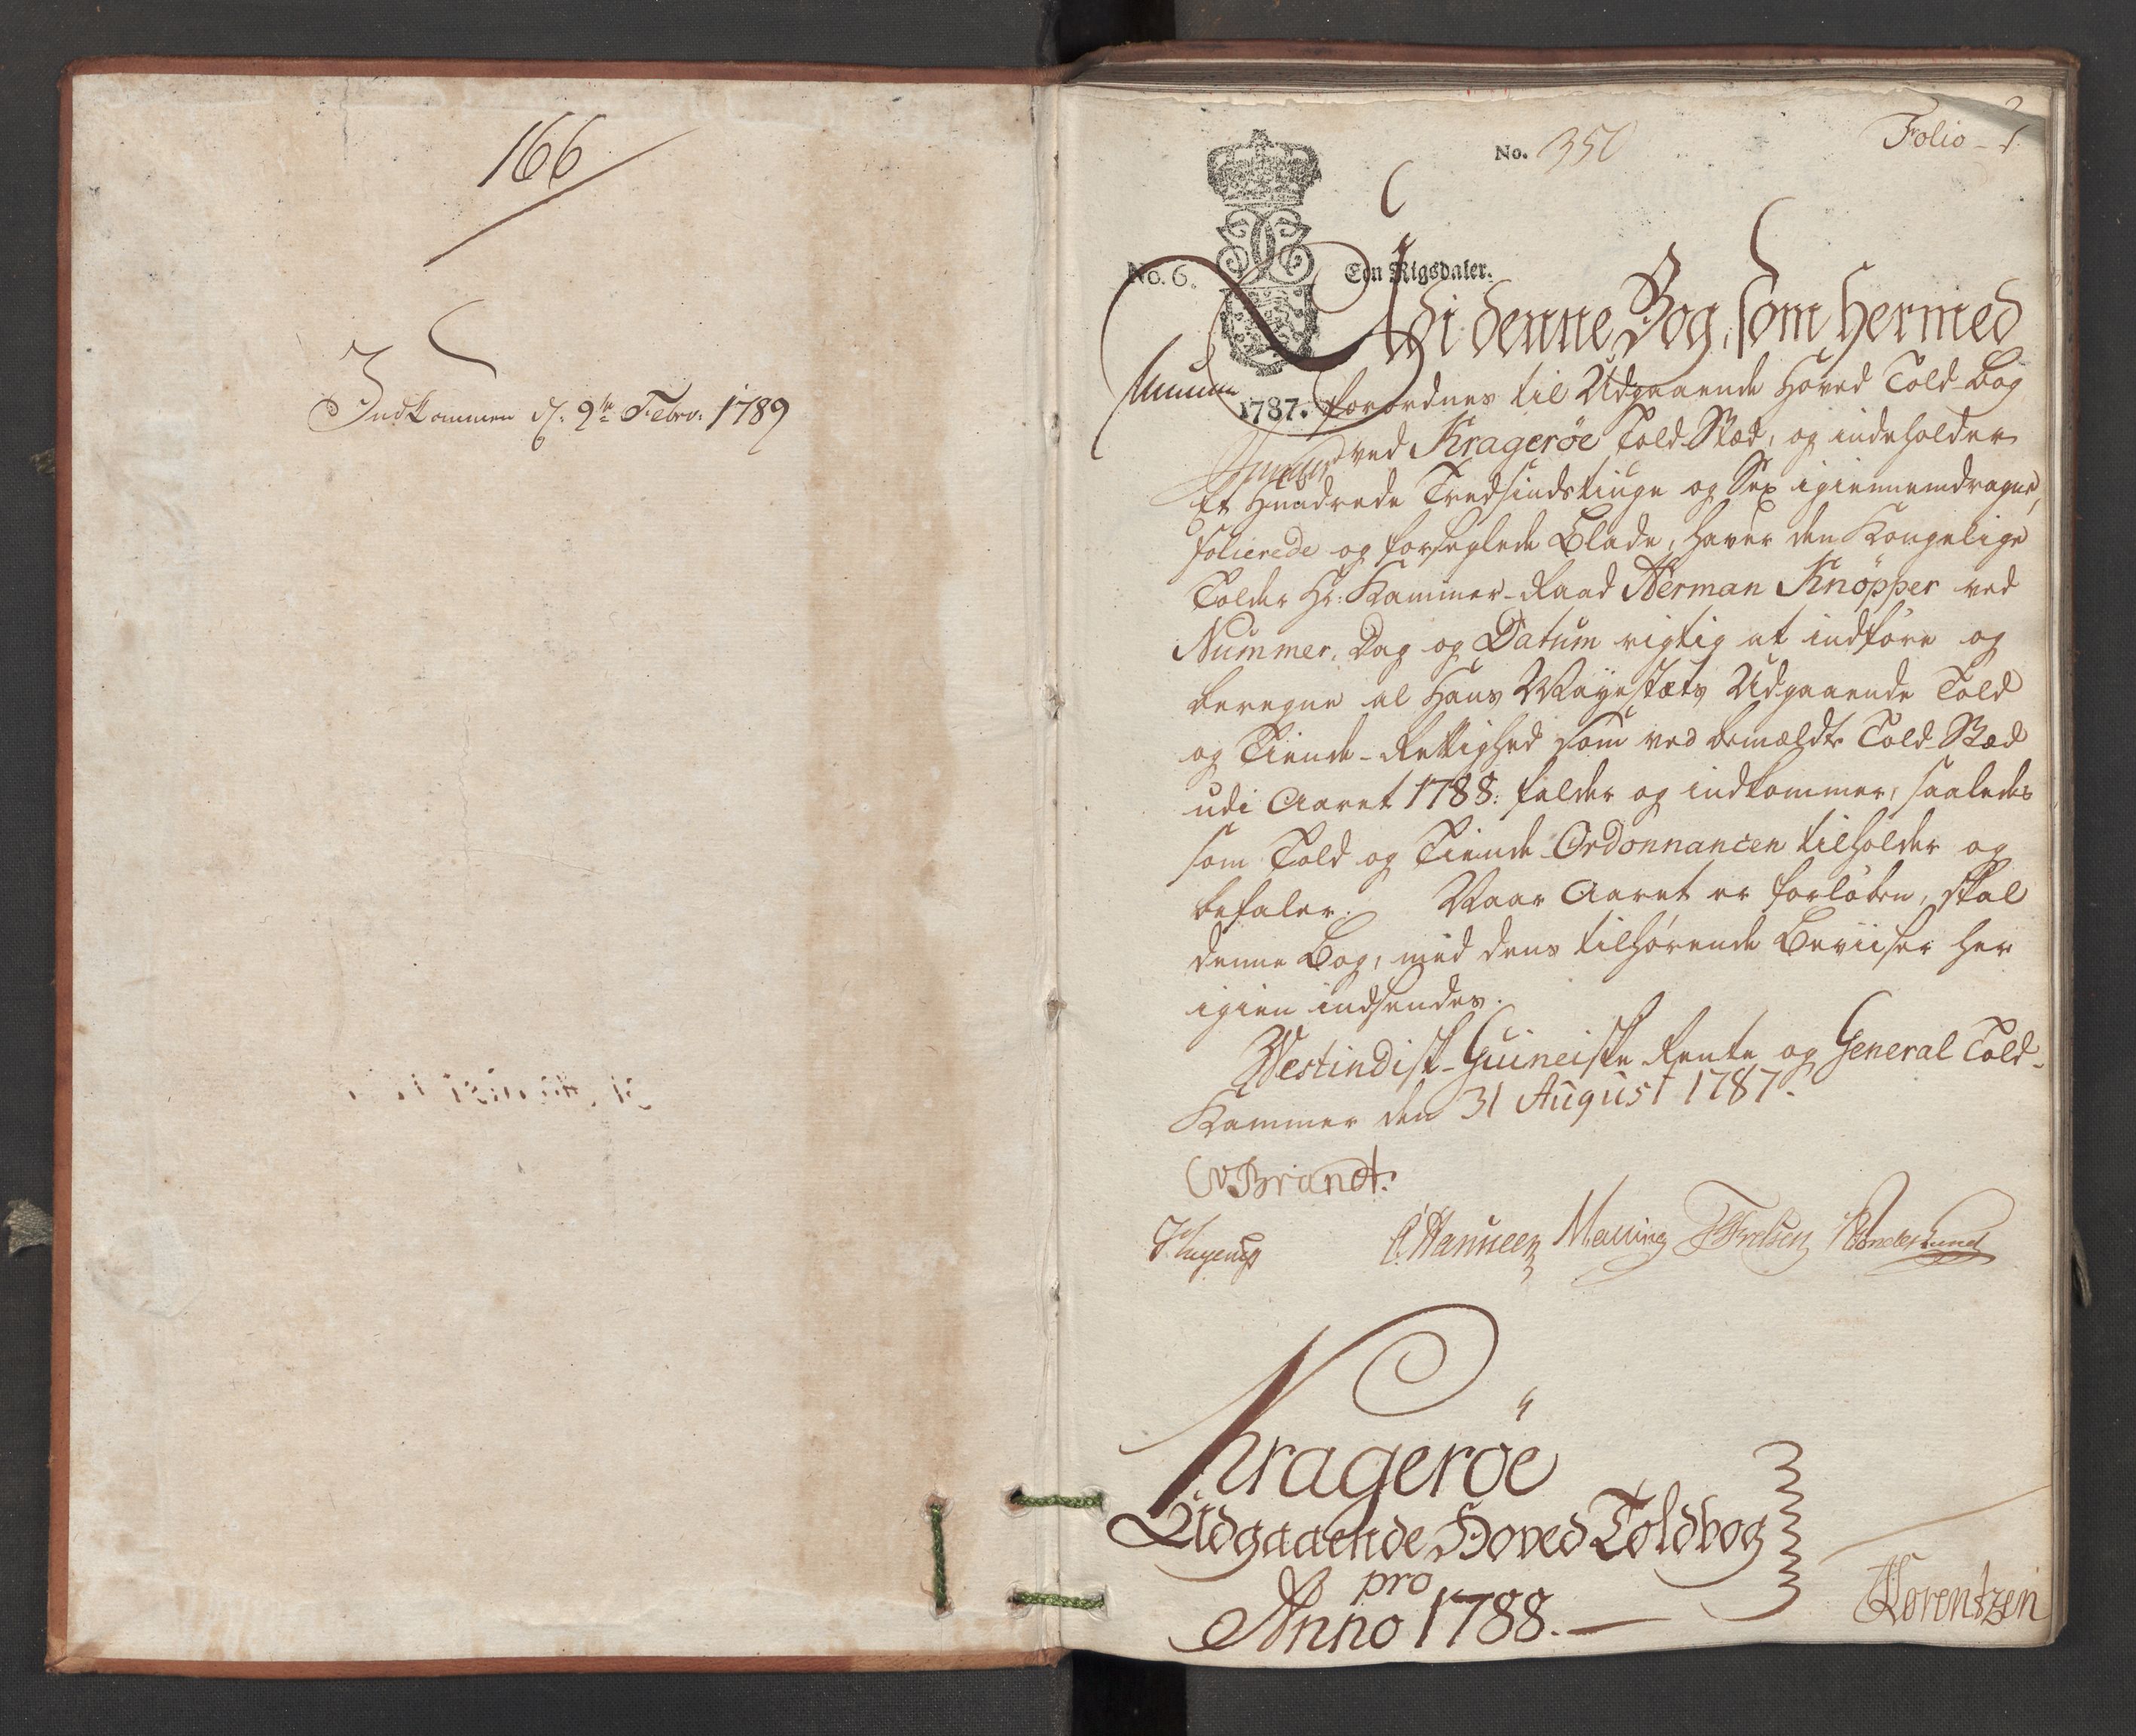 166
Indkommen d: 9de Febrv: 1789
No. 350
Folio 1
No. 6. Een Rigsdaler.
Udi denne Bog, som hermed
1787. forordnes til Udgaaende Hoved Told-Bog
ved Kragerøe Told-Stæd, og indeholder
Et Hundrede Tredsindstiuge og Sex igiennemdragne,
folierede og forseglede Blade, haver den Kongelige
Tolder Hr: Kammer-Raad Herman Knøpper ved
Nummer, Dag og Datum rigtig at indføre og
beregne al Hans Mayestæts Udgaaende Told
og Tiende-Rettighed som ved bemældte Told-Stæd
udi Aaret 1788: falder og indkommer, saaledes
som Told og Tiende Ordonnancen tilholder og
befaler. Naar Aaret er forløben, skal
denne Bog, med dens tilhørende Beviiser her
igien indsendes.
Westindisk-Guineiske Rente og General Told-
Kammer den 31 August 1787.
Brandt.
Krageröe
Udgaaende Hoved Toldbog
pro
Anno 1788.
Lorentzen